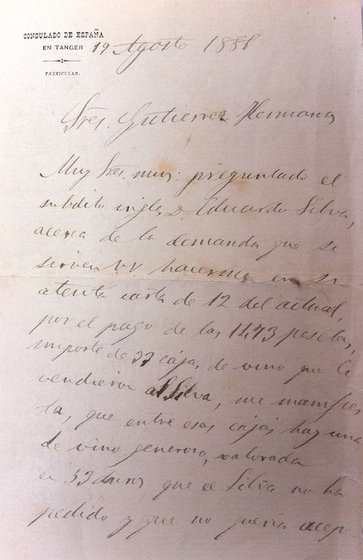 CONSULADO DE ESPAÑA
EN TANGER
PARTICULAR.
19 Agosto 1886
Sres. Gutierrez Hermanos
Muy Sres. mios: preguntado el
subdito ingles D. Eduardo Silva,
acerca de la demanda que se
sirven VV hacerme en su
atenta carta de 12 del actual,
por el pago de las 1173 pesetas,
importe de 33 cajas de vino que le
vendieron al Silva, me manifies
ta, que entre esas cajas hay una
de vino generoso, valorada
en 33 duros que el Silva no ha
pedido y que no queria acep